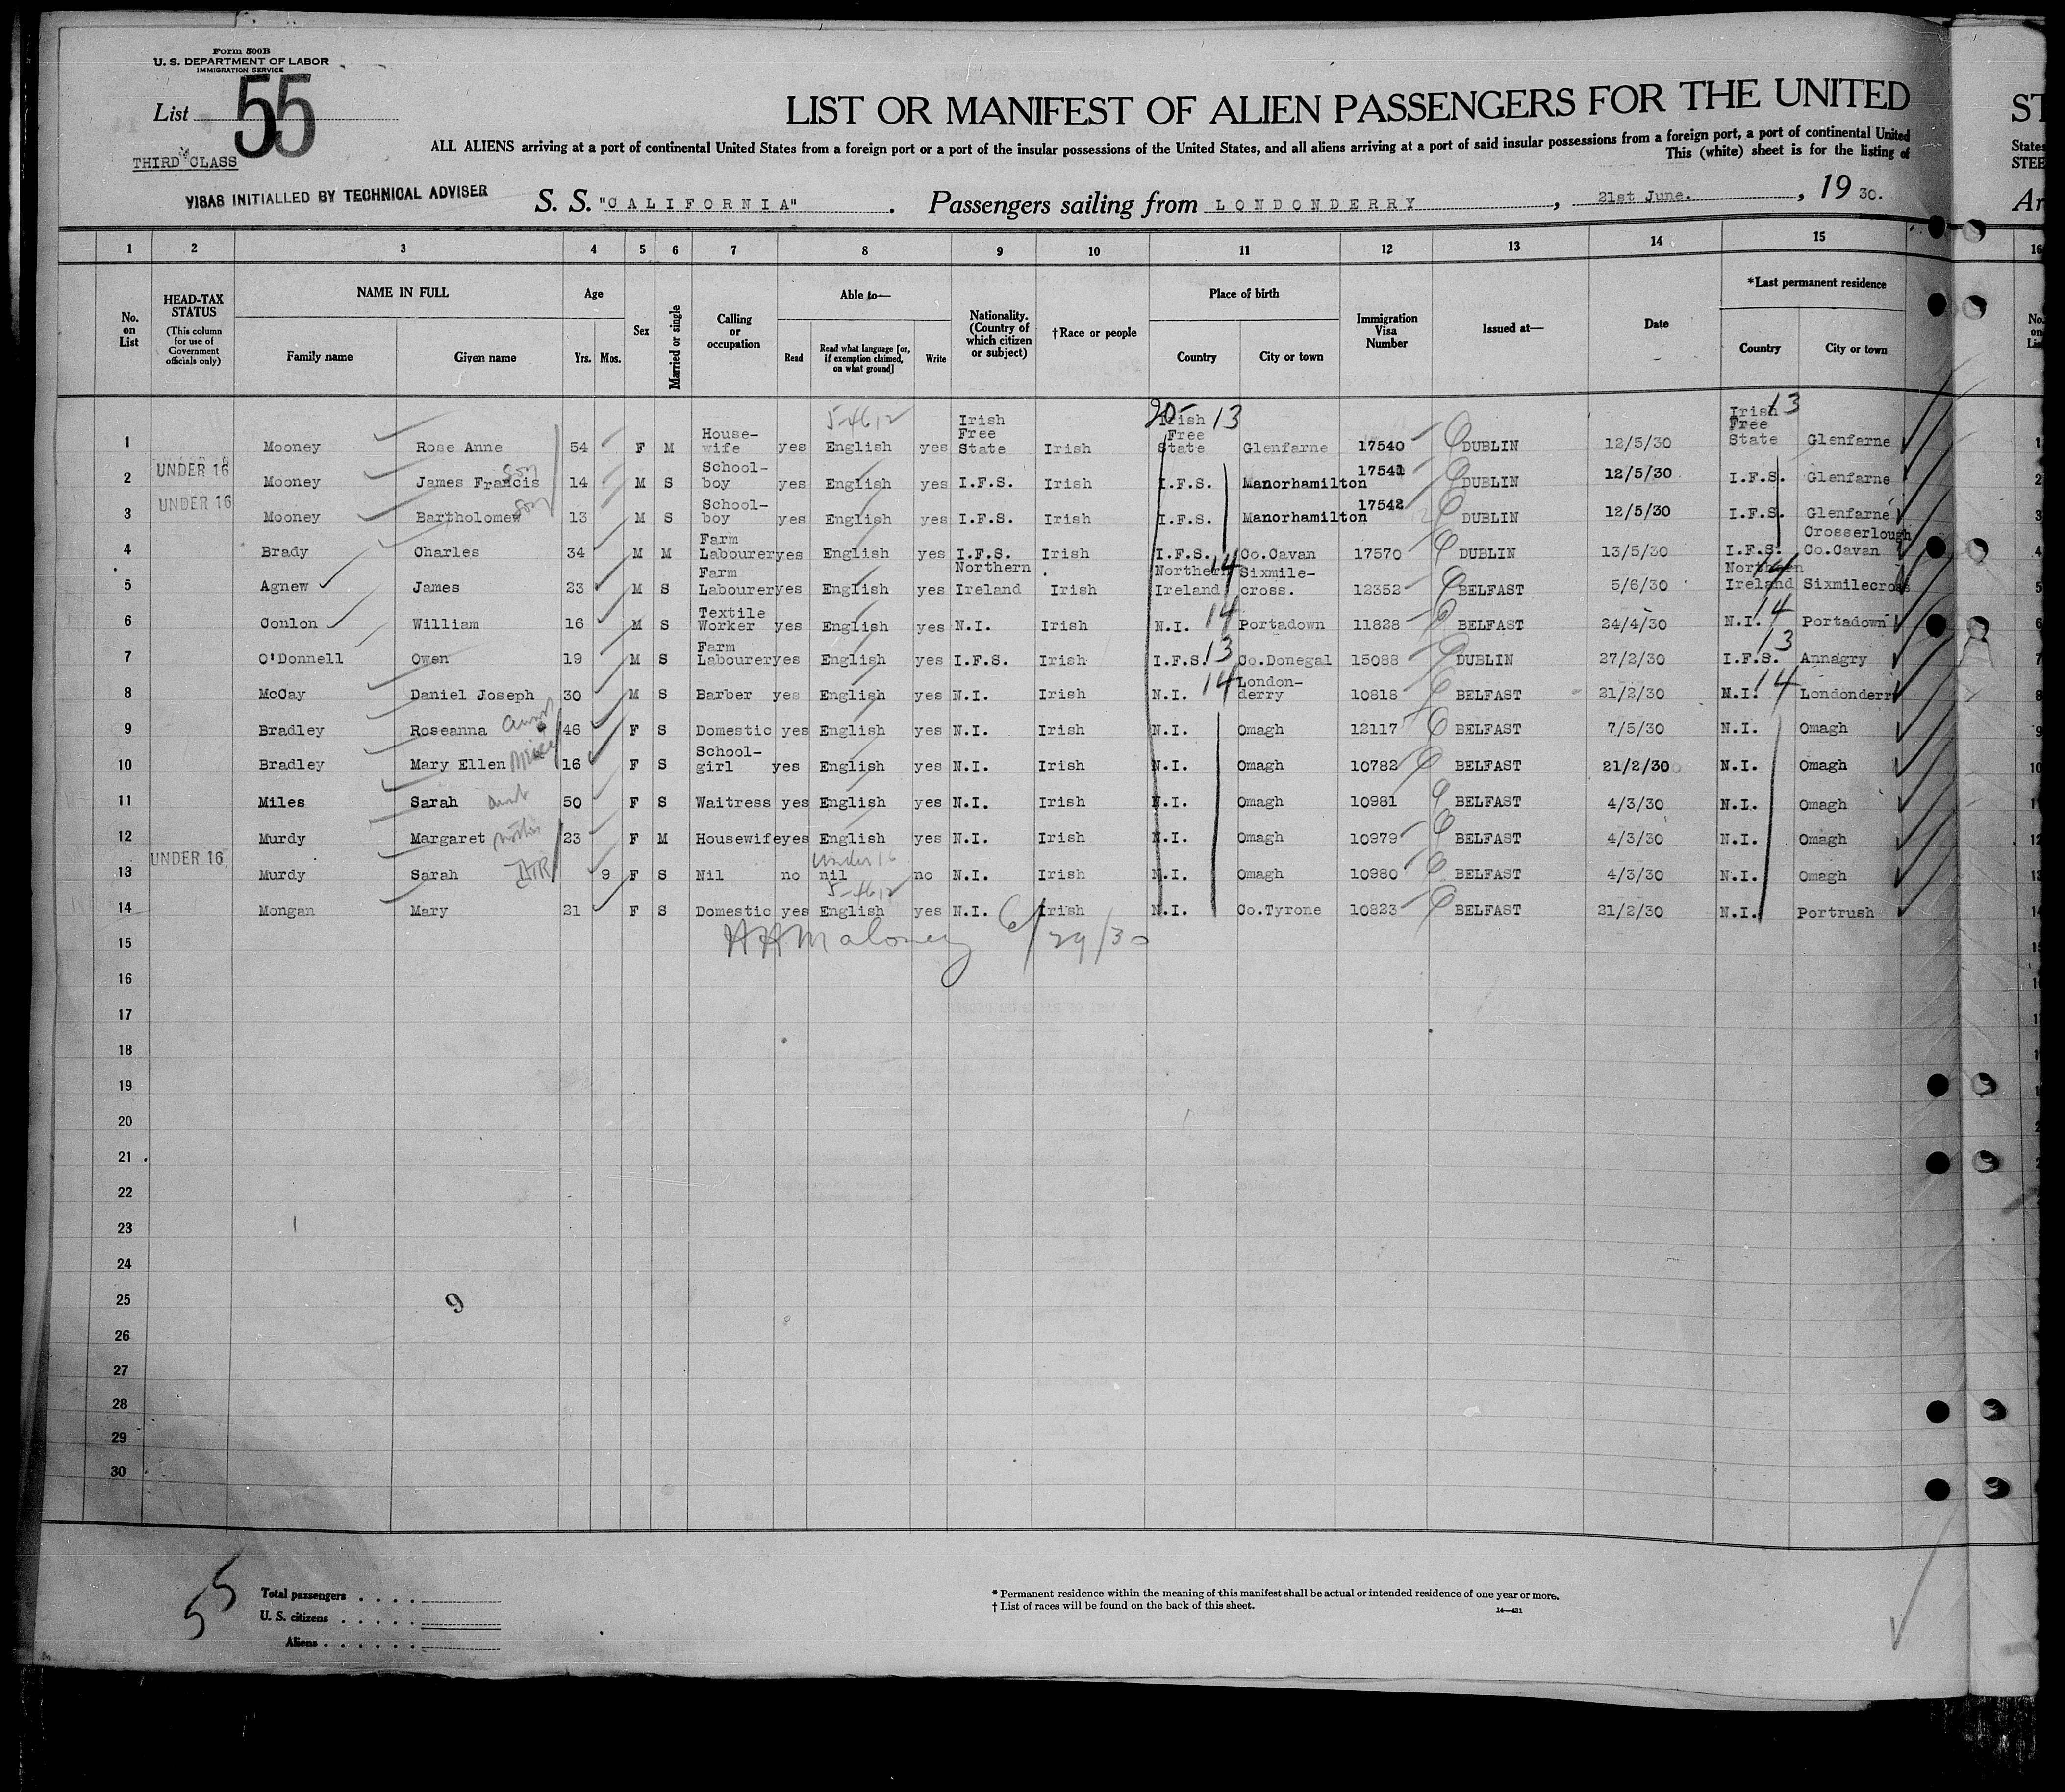 Form 500B
U. S. DEPARTMENT OF LABOR
IMMIGRATION SERVICE
List 55
THIRD CLASS
VISAS INITIALLED BY TECHNICAL ADVISER
LIST OR MANIFEST OF ALIEN PASSENGERS FOR THE UNITED ST
ALL ALIENS arriving at a port of continental United States from a foreign port or a port of the insular possessions of the United States, and all aliens arriving at a port of said insular possessions from a foreign port, a port of continental United States
This (white) sheet is for the listing of STEE
S. S. "CALIFORNIA". Passengers sailing from LONDONDERRY, 21st June., 19 30. Ar
1 2 3 4 5 6 7 8 9 10 11 12 13 14 15 16
No. on List
HEAD-TAX STATUS (This column for use of Government officials only)
NAME IN FULL Family name Given name
Age Yrs. Mos.
Sex
Married or single
Calling or occupation
Able to— Read Read what language [or, if exemption claimed, on what ground] Write
Nationality. (Country of which citizen or subject)
†Race or people
Place of birth Country City or town
Immigration Visa Number
Issued at—
Date
*Last permanent residence Country City or town
No. on Lis
5-4612 20- 13 13
1 Mooney Rose Anne 54 F M House-wife yes English yes Irish Free State Irish Irish Free State Glenfarne 17540 DUBLIN 12/5/30 Irish Free State Glenfarne 1
2 UNDER 16 Mooney James Francis son 14 M S School-boy yes English yes I.F.S. Irish I.F.S. Manorhamilton 17541 DUBLIN 12/5/30 I.F.S. Glenfarne 2
3 UNDER 16 Mooney Bartholomew son 13 M S School-boy yes English yes I.F.S. Irish I.F.S. Manorhamilton 17542 DUBLIN 12/5/30 I.F.S. Glenfarne 3
4 Brady Charles 34 M M Farm Labourer yes English yes I.F.S. Irish I.F.S. Co.Cavan 17570 DUBLIN 13/5/30 I.F.S. Crosserlough Co.Cavan 4
5 Agnew James 23 M S Farm Labourer yes English yes Northern Ireland Irish Northern Ireland 14 Sixmile-cross. 12352 BELFAST 5/6/30 Northern Ireland 14 Sixmilecross 5
6 Conlon William 16 M S Textile Worker yes English yes N.I. Irish N.I. 14 Portadown 11828 BELFAST 24/4/30 N.I. 14 Portadown 6
7 O'Donnell Owen 19 M S Farm Labourer yes English yes I.F.S. Irish I.F.S. 13 Co.Donegal 15088 DUBLIN 27/2/30 I.F.S. 13 Annagry 7
8 McCay Daniel Joseph 30 M S Barber yes English yes N.I. Irish N.I. 14 London-derry 10818 BELFAST 21/2/30 N.I. 14 Londonderry 8
9 Bradley Roseanna aunt 46 F S Domestic yes English yes N.I. Irish N.I. Omagh 12117 BELFAST 7/5/30 N.I. Omagh 9
10 Bradley Mary Ellen niece 16 F S School-girl yes English yes N.I. Irish N.I. Omagh 10782 BELFAST 21/2/30 N.I. Omagh 10
11 Miles Sarah aunt 50 F S Waitress yes English yes N.I. Irish N.I. Omagh 10981 BELFAST 4/3/30 N.I. Omagh 11
12 Murdy Margaret mother 23 F M Housewife yes English yes N.I. Irish N.I. Omagh 10979 BELFAST 4/3/30 N.I. Omagh 12
13 UNDER 16 Murdy Sarah 9 F S Nil no under 16 nil no N.I. Irish N.I. Omagh 10980 BELFAST 4/3/30 N.I. Omagh 13
14 Mongan Mary 21 F S Domestic yes 5-4612 English yes N.I. Irish N.I. Co.Tyrone 10823 BELFAST 21/2/30 N.I. Portrush 14
15 HHMaloney 6/29/30
16
17
18
19
20
21
22
23
24
25
26
27
28
29
30
9
55
Total passengers
U. S. citizens
Aliens
* Permanent residence within the meaning of this manifest shall be actual or intended residence of one year or more.
† List of races will be found on the back of this sheet.
14—431